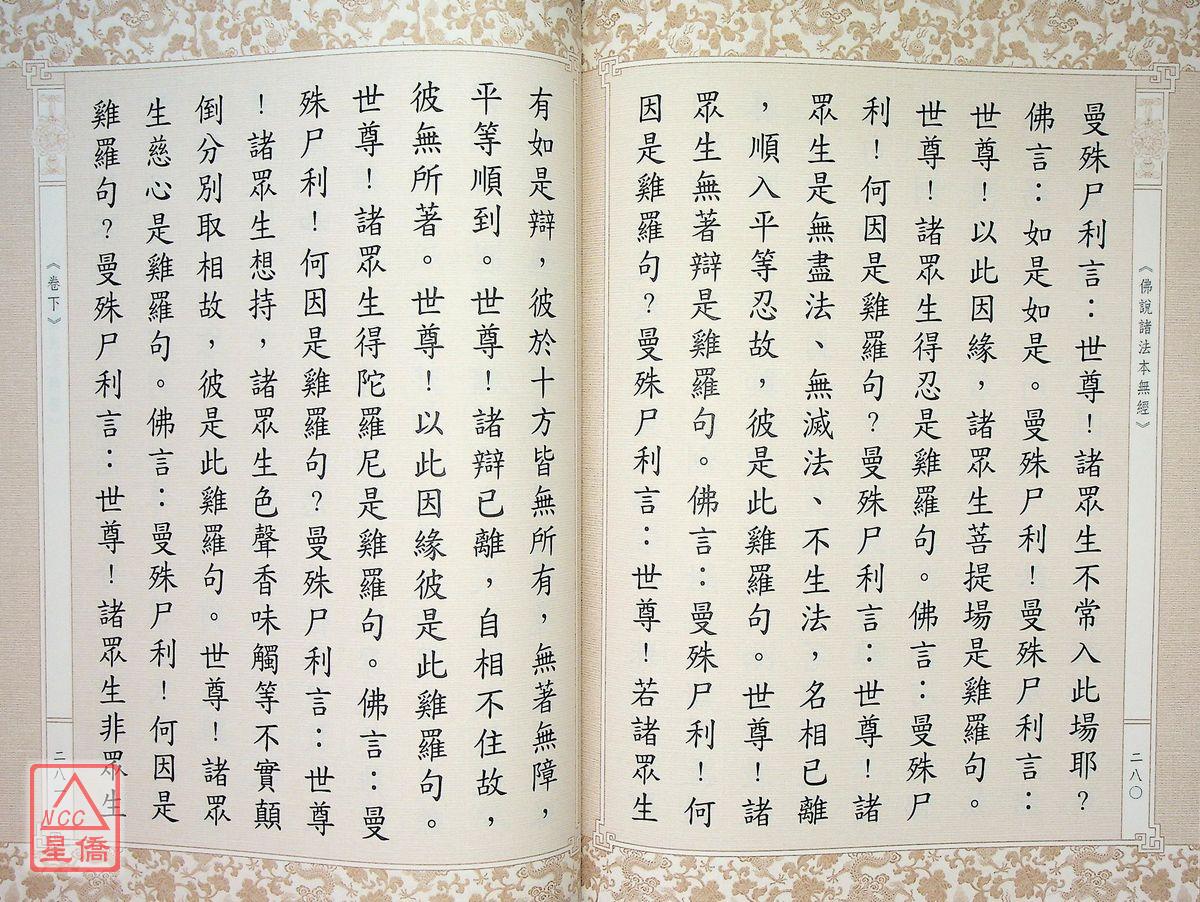 《佛說諸法本無經》
二八〇
曼殊尸利言：世尊！諸眾生不常入此場耶？
佛言：如是如是。曼殊尸利！曼殊尸利言：
世尊！以此因緣，諸眾生菩提場是雞羅句。
世尊！諸眾生得忍是雞羅句。佛言：曼殊尸
利！何因是雞羅句？曼殊尸利言：世尊！諸
眾生是無盡法、無滅法、不生法，名相已離
，順入平等忍故，彼是此雞羅句。世尊！諸
眾生無著辯是雞羅句。佛言：曼殊尸利！何
因是雞羅句？曼殊尸利言：世尊！若諸眾生
有如是辯，彼於十方皆無所有，無著無障，
平等順到。世尊！諸辯已離，自相不住故，
彼無所著。世尊！以此因緣彼是此雞羅句。
世尊！諸眾生得陀羅尼是雞羅句。佛言：曼
殊尸利！何因是雞羅句？曼殊尸利言：世尊
！諸眾生想持，諸眾生色聲香味觸等不實顛
倒分別取相故，彼是此雞羅句。世尊！諸眾
生慈心是雞羅句。佛言：曼殊尸利！何因是
雞羅句？曼殊尸利言：世尊！諸眾生非眾生
《卷下》
二八
NCC
星僑